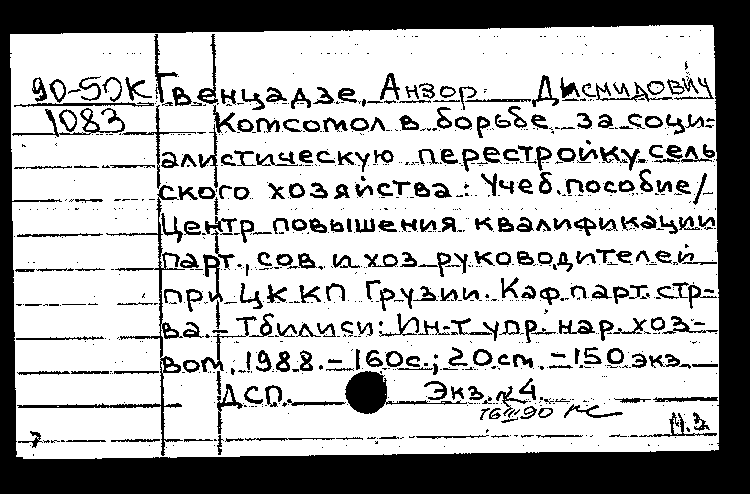 90-50К Гвенцадзе, Анзор Дисмидович
1083 Комсомол в борьбе за соци-
алистическую перестройку сель
ского хозяйства: Учеб. пособие/
Центр повышения квалификации
парт., сов. и хоз. руководителей
при ЦК КП Грузии. Каф. парт. стр-
ва. - Тбилиси: Ин-т упр. нар. хоз-
вом, 1988. - 160с.; 20см. - 150 экз.
ДСП. Экз. №4
16 III 90
М.З.
7